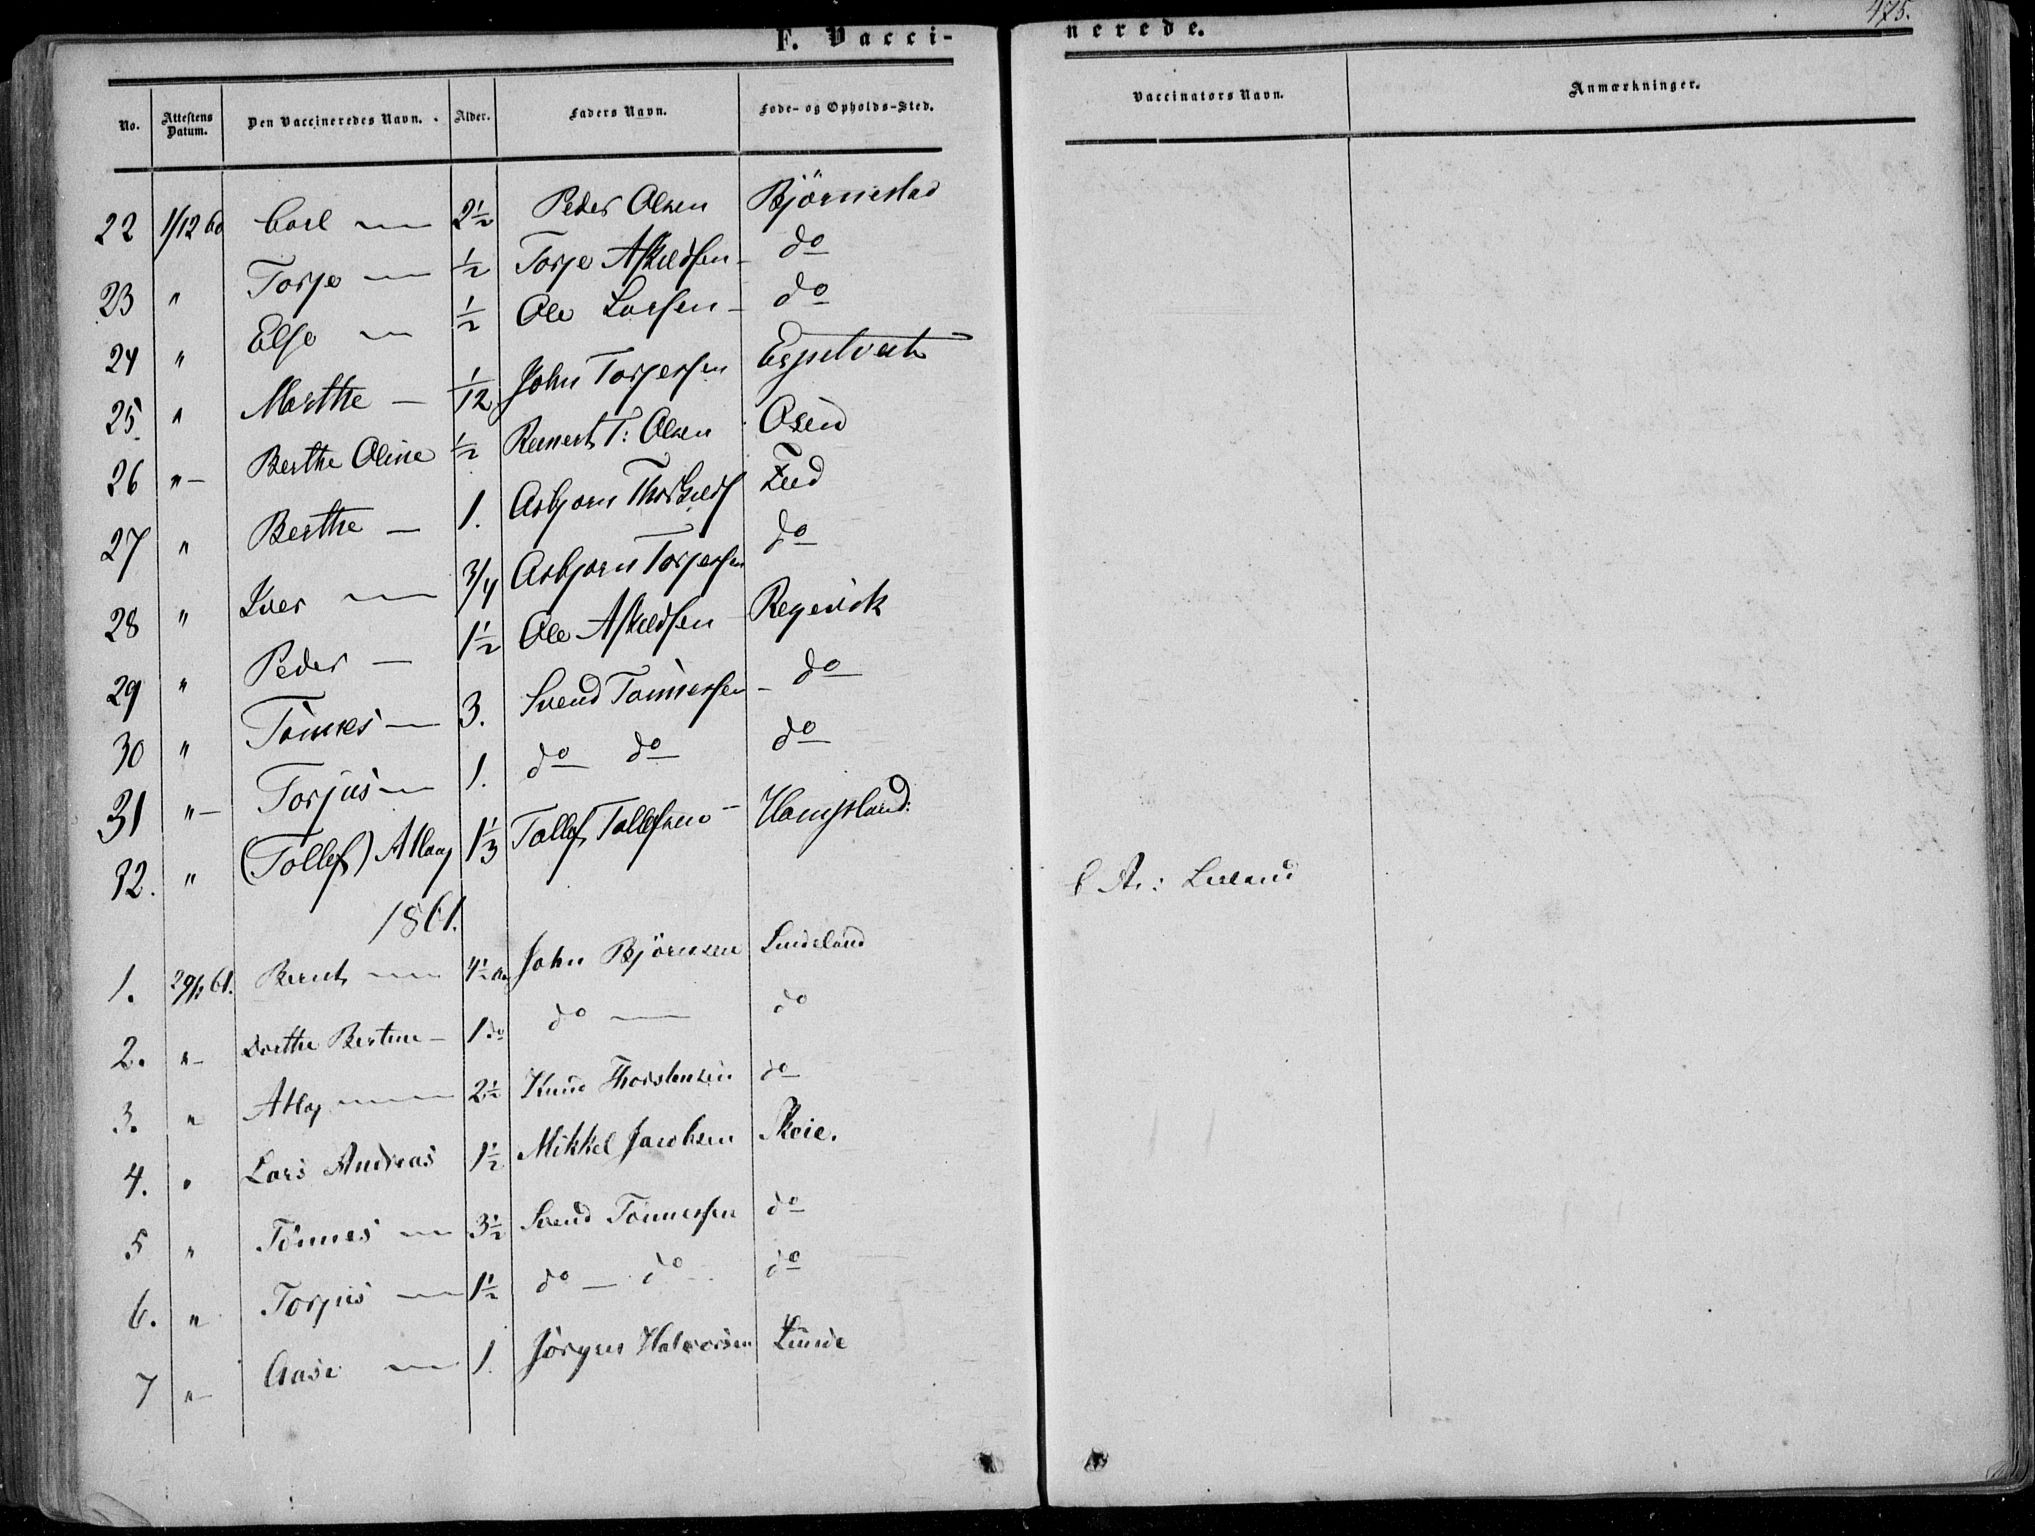 F. Vacci-
nerede.
475.
No. Attestens Datum. Den Vaccineredes Navn. Alder. Faders Navn. Føde- og Opholds-Sted.
Vaccinators Navn. Anmærkninger.
22 1/12 60 Carl — 2½ Peder Olsen Björnestad
23 " Torje — ½ Torje Askildsen - do
24 " Else — ½ Ole Larsen - do
25. " Marthe — 1/12 John Torjersen
26 "- Berthe Oline ½ Reinert T: Olsen Osen
27 " Berthe — 1. Asbjorn Feed
28 " Iver — 3/4 Asbjorn Torjersen do
29 " Peder — 1½ Ole Askildsen - Regevik
30 " Tönnes — 3. Svend Tönnessen - do
31 "- Torjus — 1. do do do
32. " (Tollef) Atlag 1⅓ Tollef Tollefsen -
1861.
1. 29/1 61. Bernt — 4½ Aar John Björnsen Lindeland
2. "- Dorthe Bertine — 1 do do — do
3. " Atlag — 2½ Knud Thorstensen do
4. " Lars Andreas 1½ Mikkel Jacobsen Skeie.
5 " Tönnes — 3½ Svend Tönnessen do
6. " Torjus — 1½ do — do do
7 "- Aase — 1. Jörgen Halvorsen Lunde